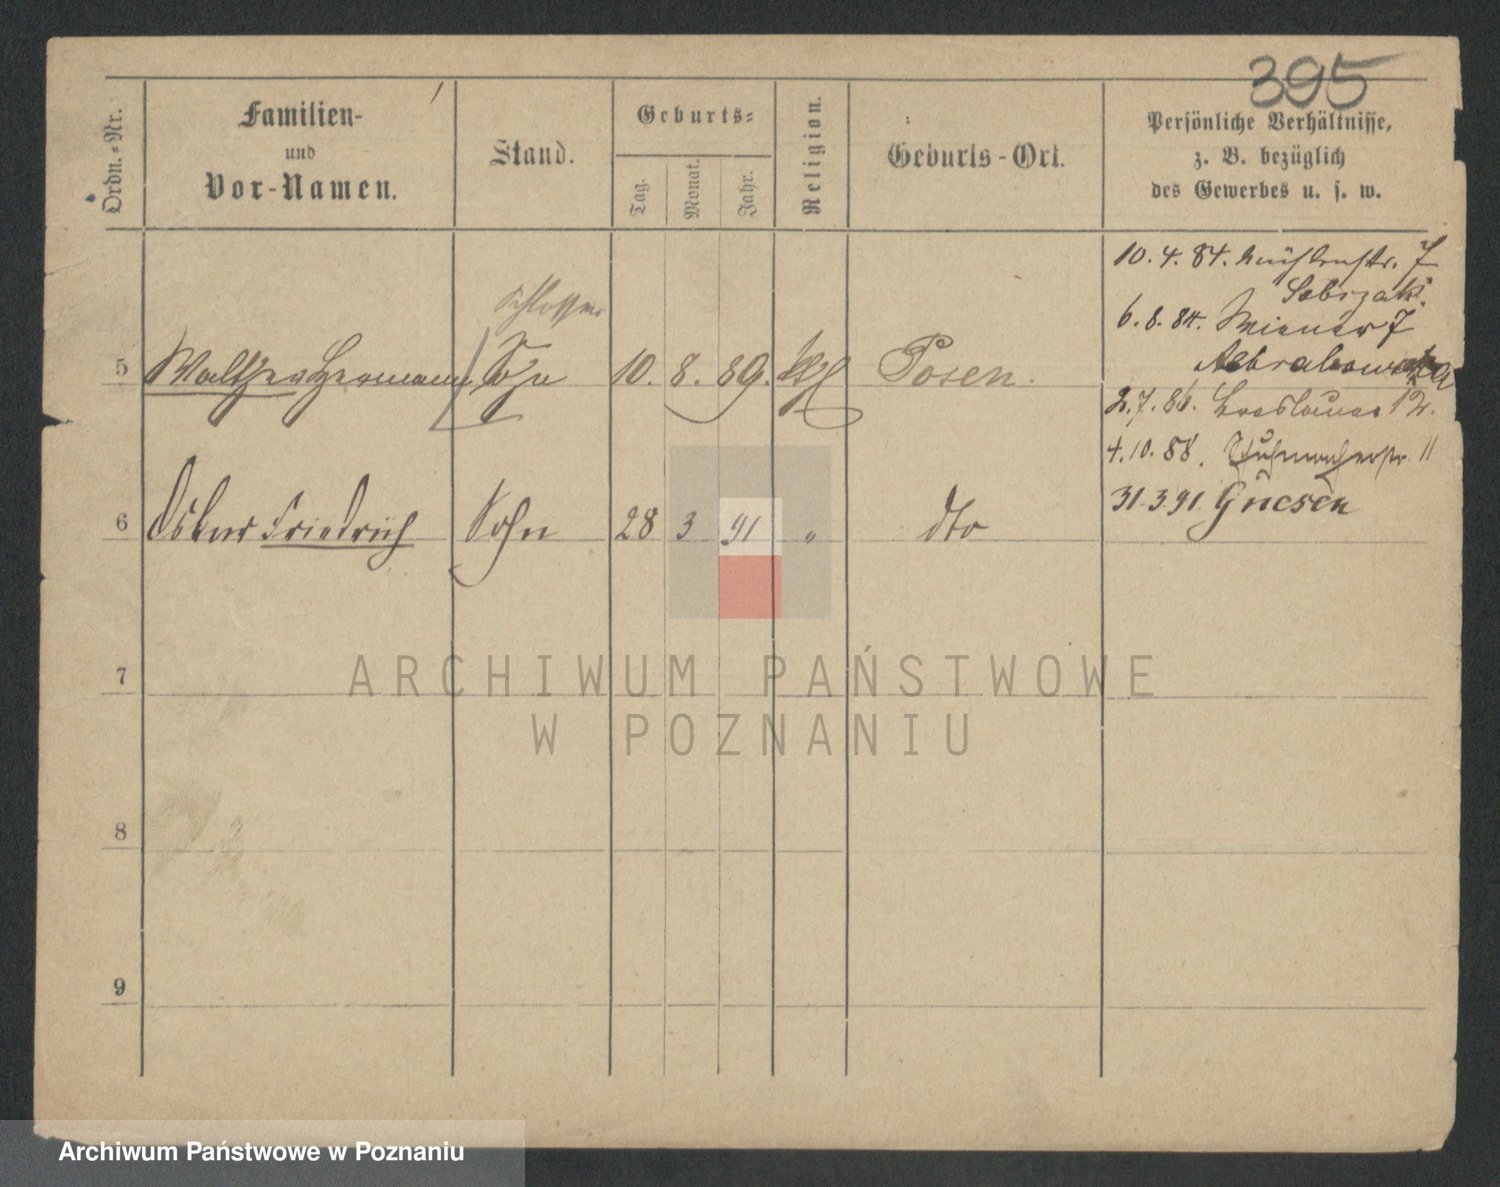 395
Ordn.-Nr.
Familien-
und
Vor-Namen.
Stand.
Geburts-
Tag.
Monat.
Jahr.
Religion.
Geburts-Ort.
Persönliche Verhältnisse,
z. B. bezüglich
des Gewerbes u. s. w.
10. 4. 84. Mühlenstr. 7
6. 8. 84. Wiener 7
2. 7. 86. Breslauer 12.
4. 10. 88. Schuhmacherstr. 11
31. 3. 91. Gnesen
Schlosser
5 Walther Hermann Sohn 10. 8. 89. Posen.
6 Oskar Friedrich Sohn 28 3 91 " dto
7
8
9
ARCHIWUM PAŃSTWOWE
W POZNANIU
Archiwum Państwowe w Poznaniu